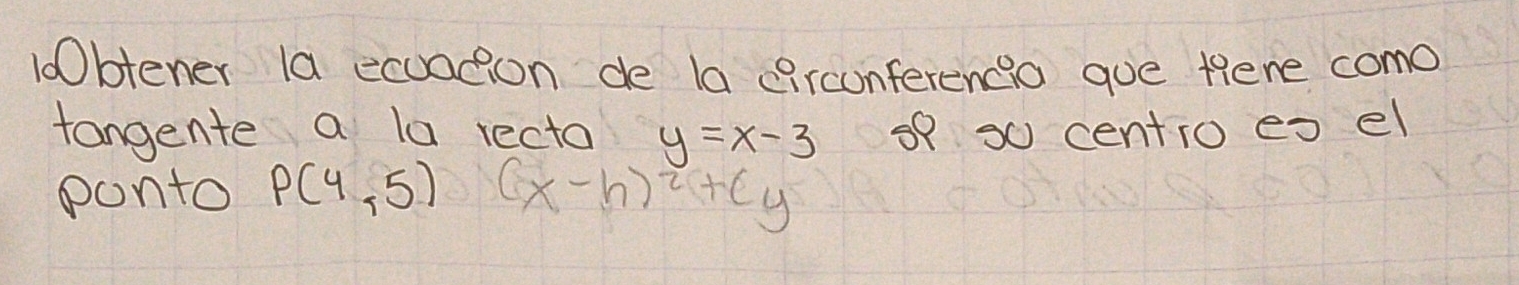 1.Obtener la ecuacion de la circunferencia que tiene como
tangente a la recta y=x-3 si su centro es el
punto P(4,5) (x-h)²+(y